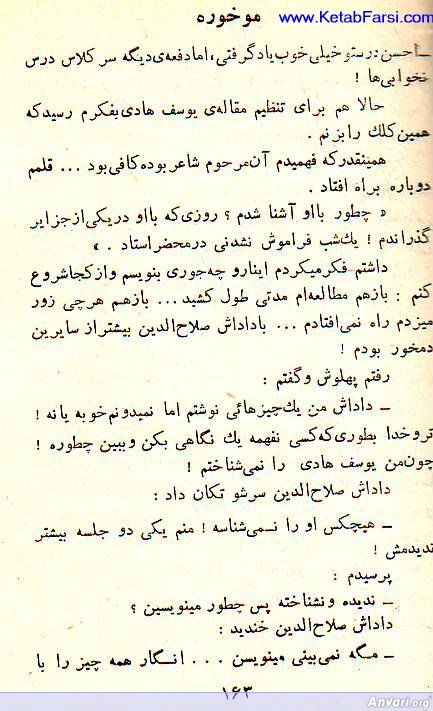 www.KetabFarsi.com موخوره
ـ احسن درستو خیلی خوب یاد گرفتی، اما دفعه‌ی دیگه سر کلاس درس
نخوابی‌ها !
حالا هم برای تنظیم مقاله‌ی یوسف هادی بفکرم رسید که
همین کلك را بزنم .
همینقدر که فهمیدم آن مرحوم شاعر بوده کافی بود ... قلمم
دوباره براه افتاد .
« چطور بااو آشنا شدم ؟ روزی که بااو در یکی از جزایر
گذراندم ! یك شب فراموش نشدنی در محضر استاد . »
داشتم فکر میکردم اینارو چه‌جوری بنویسم و از کجا شروع
کنم : بازهم مطالعه‌ام مدتی طول کشید ... بازهم هرچی زور
میزدم راه نمی‌افتادم ... باداداش صلاح‌الدین بیشتر از سایرین
دمخور بودم !
رفتم پهلوش و گفتم :
ـ داداش من یك چیزهائی نوشتم اما نمیدونم خوبه یا نه !
ترو خدا بطوری که کسی نفهمه یك نگاهی بکن و ببین چطوره !
چون من یوسف هادی را نمی‌شناختم !
داداش صلاح‌الدین سرشو تکان داد :
ـ هیچکس او را نمی‌شناسه ! منم یکی دو جلسه بیشتر
ندیدمش !
پرسیدم :
ـ ندیده و نشناخته پس چطور مینویسین ؟
داداش صلاح‌الدین خندید :
ـ مگه نمی‌بینی مینویسن ... انگار همه چیز را با
۱۶۳
Anvari.org